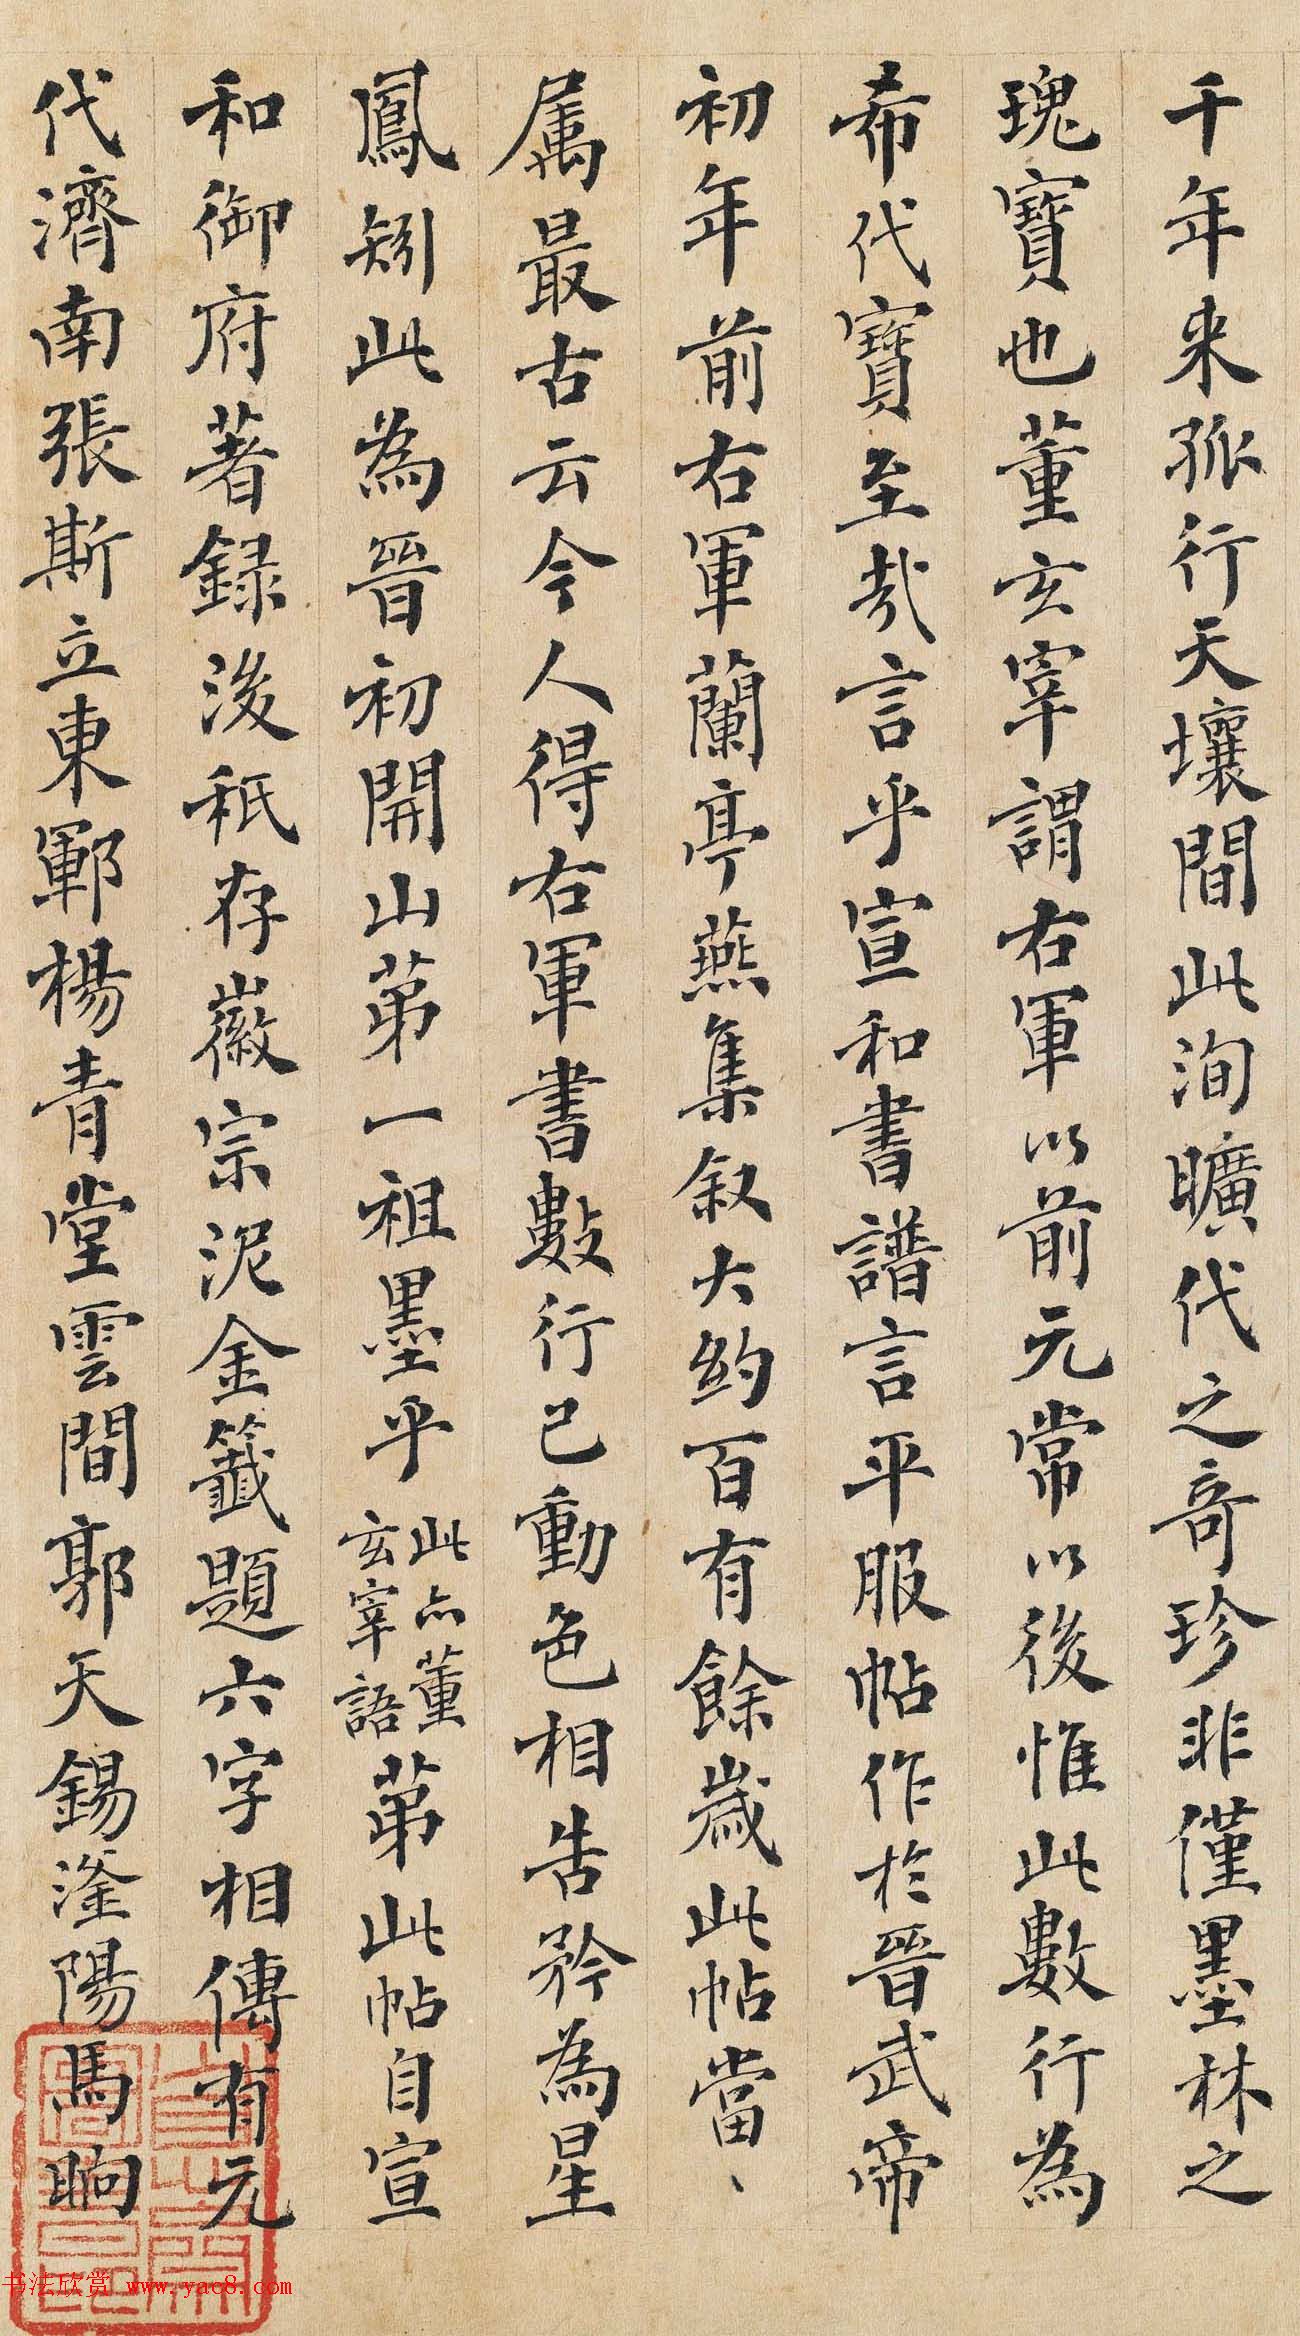 千年来孤行天壤間此洵曠代之奇珍非僅墨林之
瑰寶也董玄宰謂右軍以前元常以後惟此數行為
希代寶至哉言乎宣和書譜言平服帖作於晉武帝
初年前右軍蘭亭燕集敘大約百有餘歲此帖當、
属最古云今人得右軍書數行已動色相告矜為星
鳳矧此為晉初開山苐一祖墨乎此亦董玄宰語苐此帖自宣
和御府著録後秖存徽宗泥金籤題六字相傳有元
代濟南張斯立東鄆楊青堂雲間郭天錫滏陽馬晌
书法欣赏 www.yac8.com